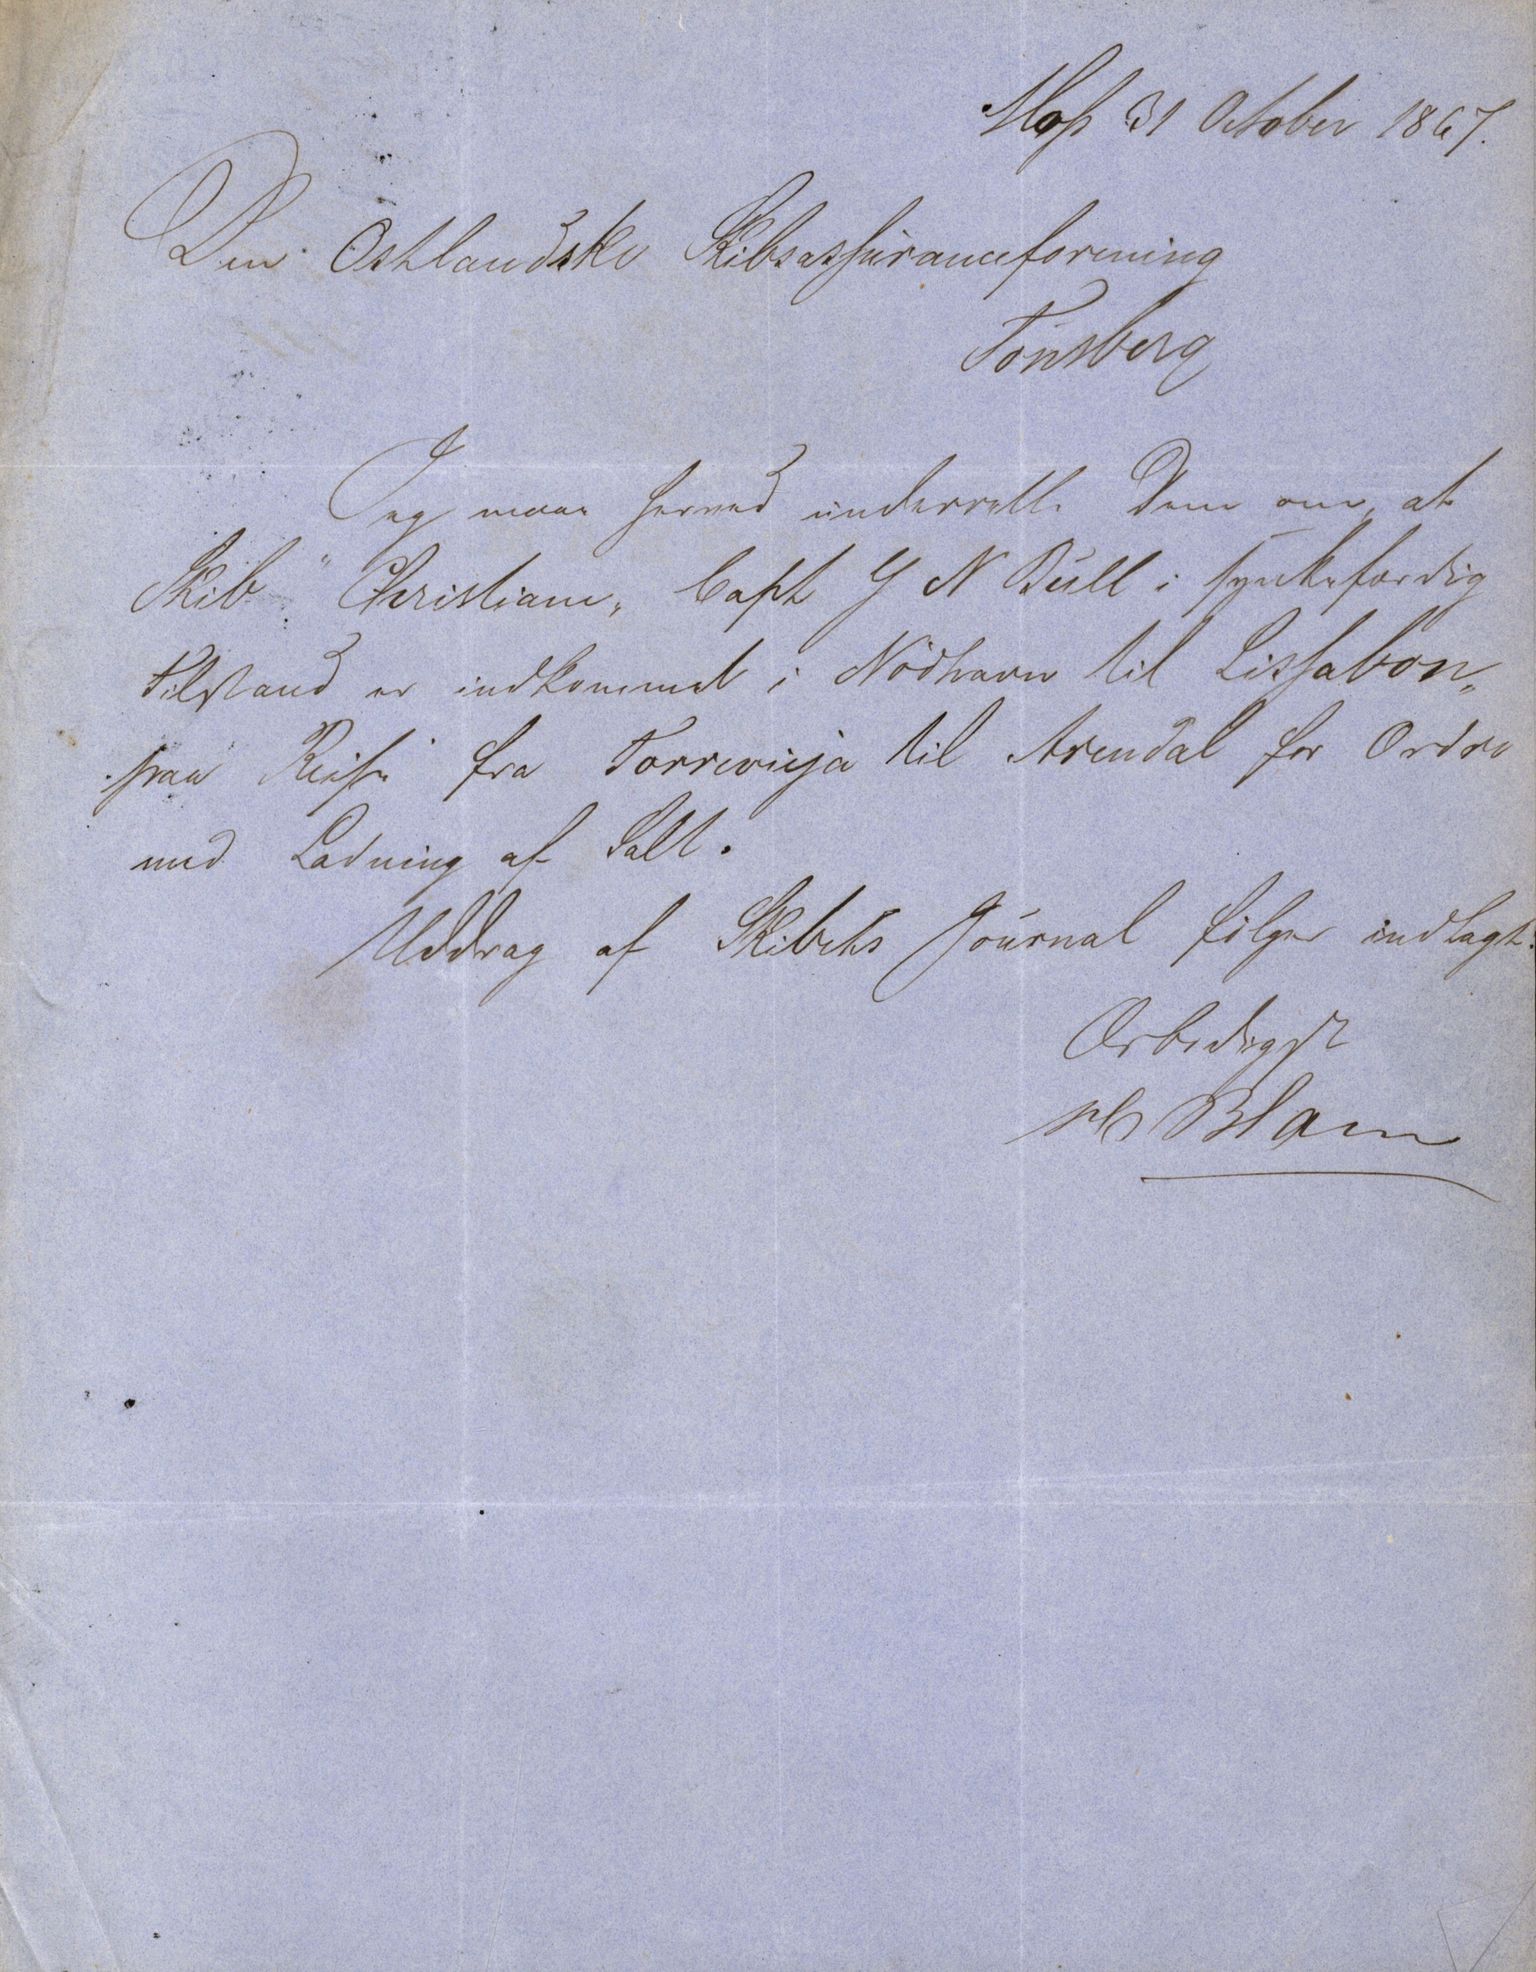 Moss 31 October 1867.
Den Østlandske Skibsassuranceforening
Tönsberg
Jeg maa herved underrette Dem om, at
Skib "Christiane" Capt G N Bull i synkefærdig
Tilstand er indkommet i Nödhavn til Lissabon,
paa Reise fra Torrevieja til Arendal for Ordre
med Ladning af Salt.
Uddrag af Skibets Journal fölger indlagt.
Ærbødigst
Blom